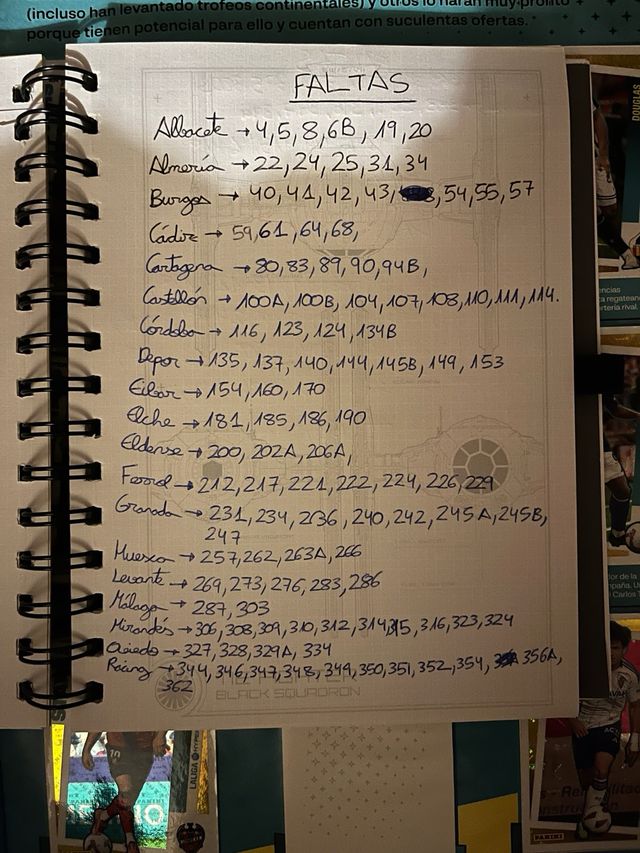 (incluso han levantado trofeos continentales) y otros lo harán muy pronto
porque tienen potencial para ello y cuentan con suculentas ofertas.
FALTAS
Albacete → 4, 5, 8, 6B, 19, 20
Almería → 22, 24, 25, 31, 34
Burgos → 40, 41, 42, 43, 54, 55, 57
Cádiz → 59, 61, 64, 68,
Cartagena → 80, 83, 89, 90, 94B,
Castellón → 100A, 100B, 104, 107, 108, 110, 111, 114.
Córdoba → 116, 123, 124, 134B
Depor → 135, 137, 140, 144, 145B, 149, 153
Eibar → 154, 160, 170
Elche → 181, 185, 186, 190
Eldense → 200, 202A, 206A,
Ferrol → 212, 217, 221, 222, 224, 226, 229
Granada → 231, 234, 236, 240, 242, 245A, 245B,
247
Huesca → 257, 262, 263A, 266
Levante → 269, 273, 276, 283, 286
Málaga → 287, 303
Mirandés → 306, 308, 309, 310, 312, 314, 315, 316, 323, 324
Oviedo → 327, 328, 329A, 334
Racing → 344, 346, 347, 348, 349, 350, 351, 352, 354, 356A,
362
BLACK SQUADRON
DOUGLAS
encias
a regatean
rtería rival.
dor de la
PANINI
LALIGA
PANINI